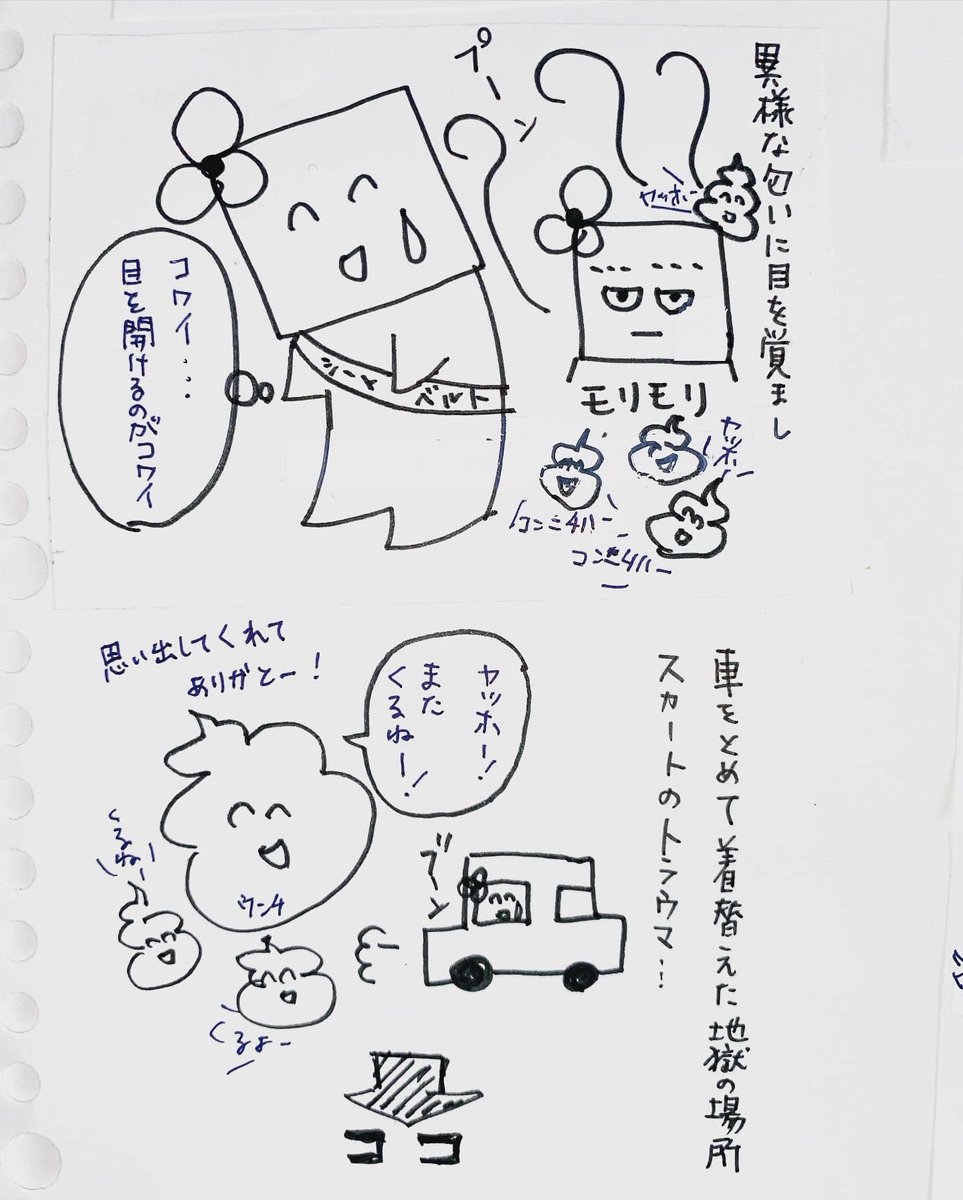 異様な匂いに目を覚まし
プーン
ヤッホー
モリモリ
ヤッホー
コンニチハー
コンニチハー
シート
ベルト
コワイ・・・
目を開けるのがコワイ
車をとめて着替えた地獄の場所
スカートのトラウマ…
ヤッホー!
また
くるねー!
思い出してくれて
ありがとー!
ウンチ
くるねー
くるよー
ブーン
ココ